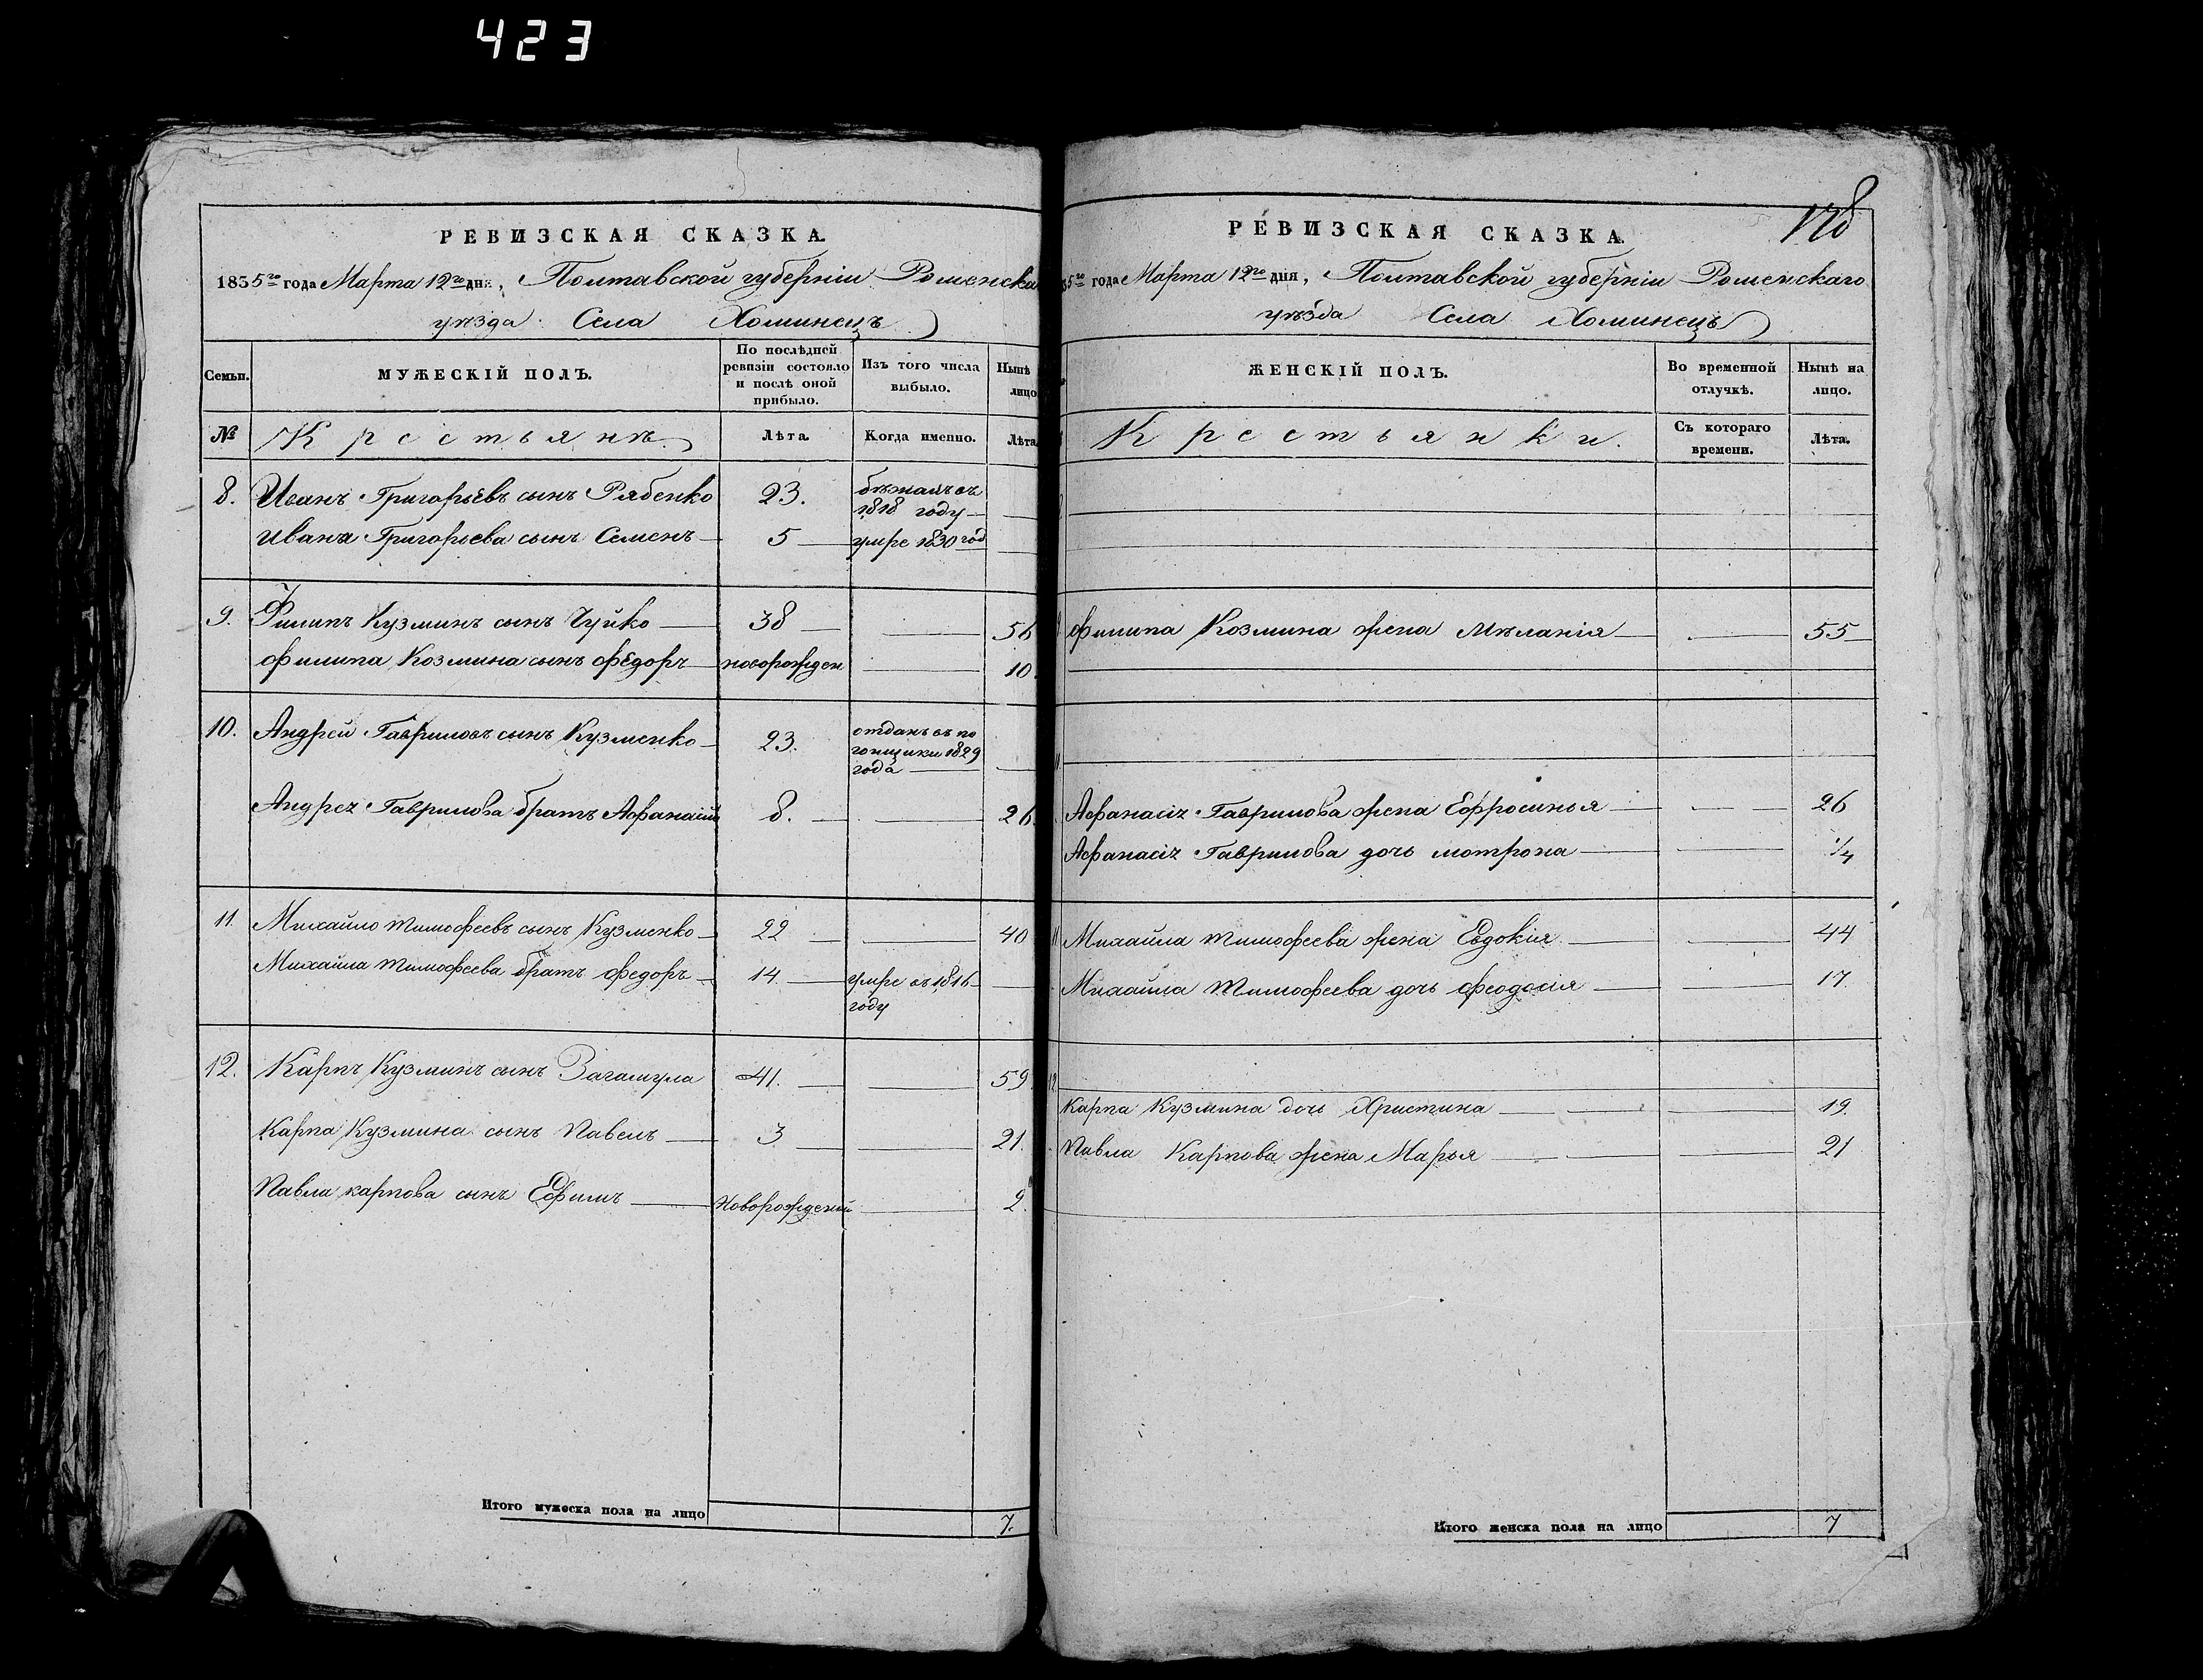 423
РЕВИЗСКАЯ СКАЗКА.
1835го года Марта 12го дня, Полтавской губернiи Роменска
уѣзда Села Хоминецъ
Семьи. МУЖЕСКIЙ ПОЛЪ. По послѣдней ревизiи состояло и послѣ оной прибыло. Изъ того числа выбыло. Нынѣ лицо
№ Крестьянѣ. Лѣта. Когда именно. Лѣта
8. Иванъ Григорьевъ сынъ Рябенко 23. бѣжалъ въ
1818 году
Ивана Григорьева сынъ Семенъ 5 умре 1830 год
9. Филипъ Кузминъ сынъ Чуйко 38 56
Филипа Козмина сынъ Федоръ новорожден 10
10. Андрей Гавриловъ сынъ Кузменко 23. отданъ въ по
гонщики 1829
года
Андрея Гаврилова братъ Афанасiй 8. 26.
11. Михайло Тимофеевъ сынъ Кузменко 22 40
Михайла Тимофеева братъ Федоръ 14. умре въ 1816
году
12. Карпъ Кузминъ сынъ Загамула 41. 59.
Карпа Кузмина сынъ Павелъ 3 21.
Павла Карпова сынъ Ефимъ Новорожденый 2.
Итого мужеска пола на лицо 7.
178
РЕВИЗСКАЯ СКАЗКА.
35го года Марта 12го дня, Полтавской губернiи Роменскаго
уѣзда Села Хоминецъ
ЖЕНСКIЙ ПОЛЪ. Во временной отлучкѣ. Нынѣ на лицо.
Крестьянки. Съ котораго времени. Лѣта.
Филипа Козмина жена Мѣланiя 55
Афанасiя Гаврилова жена Ефросинья 26
Афанасiя Гаврилова дочь Мотрона 1/4
11 Михайла Тимофеева жена Евдокiя 44
Михайла Тимофеева дочь Феодосiя 17
12.
Карпа Кузмина дочь Христина 19.
Павла Карпова жена Марья 21
Итого женска пола на лицо 7